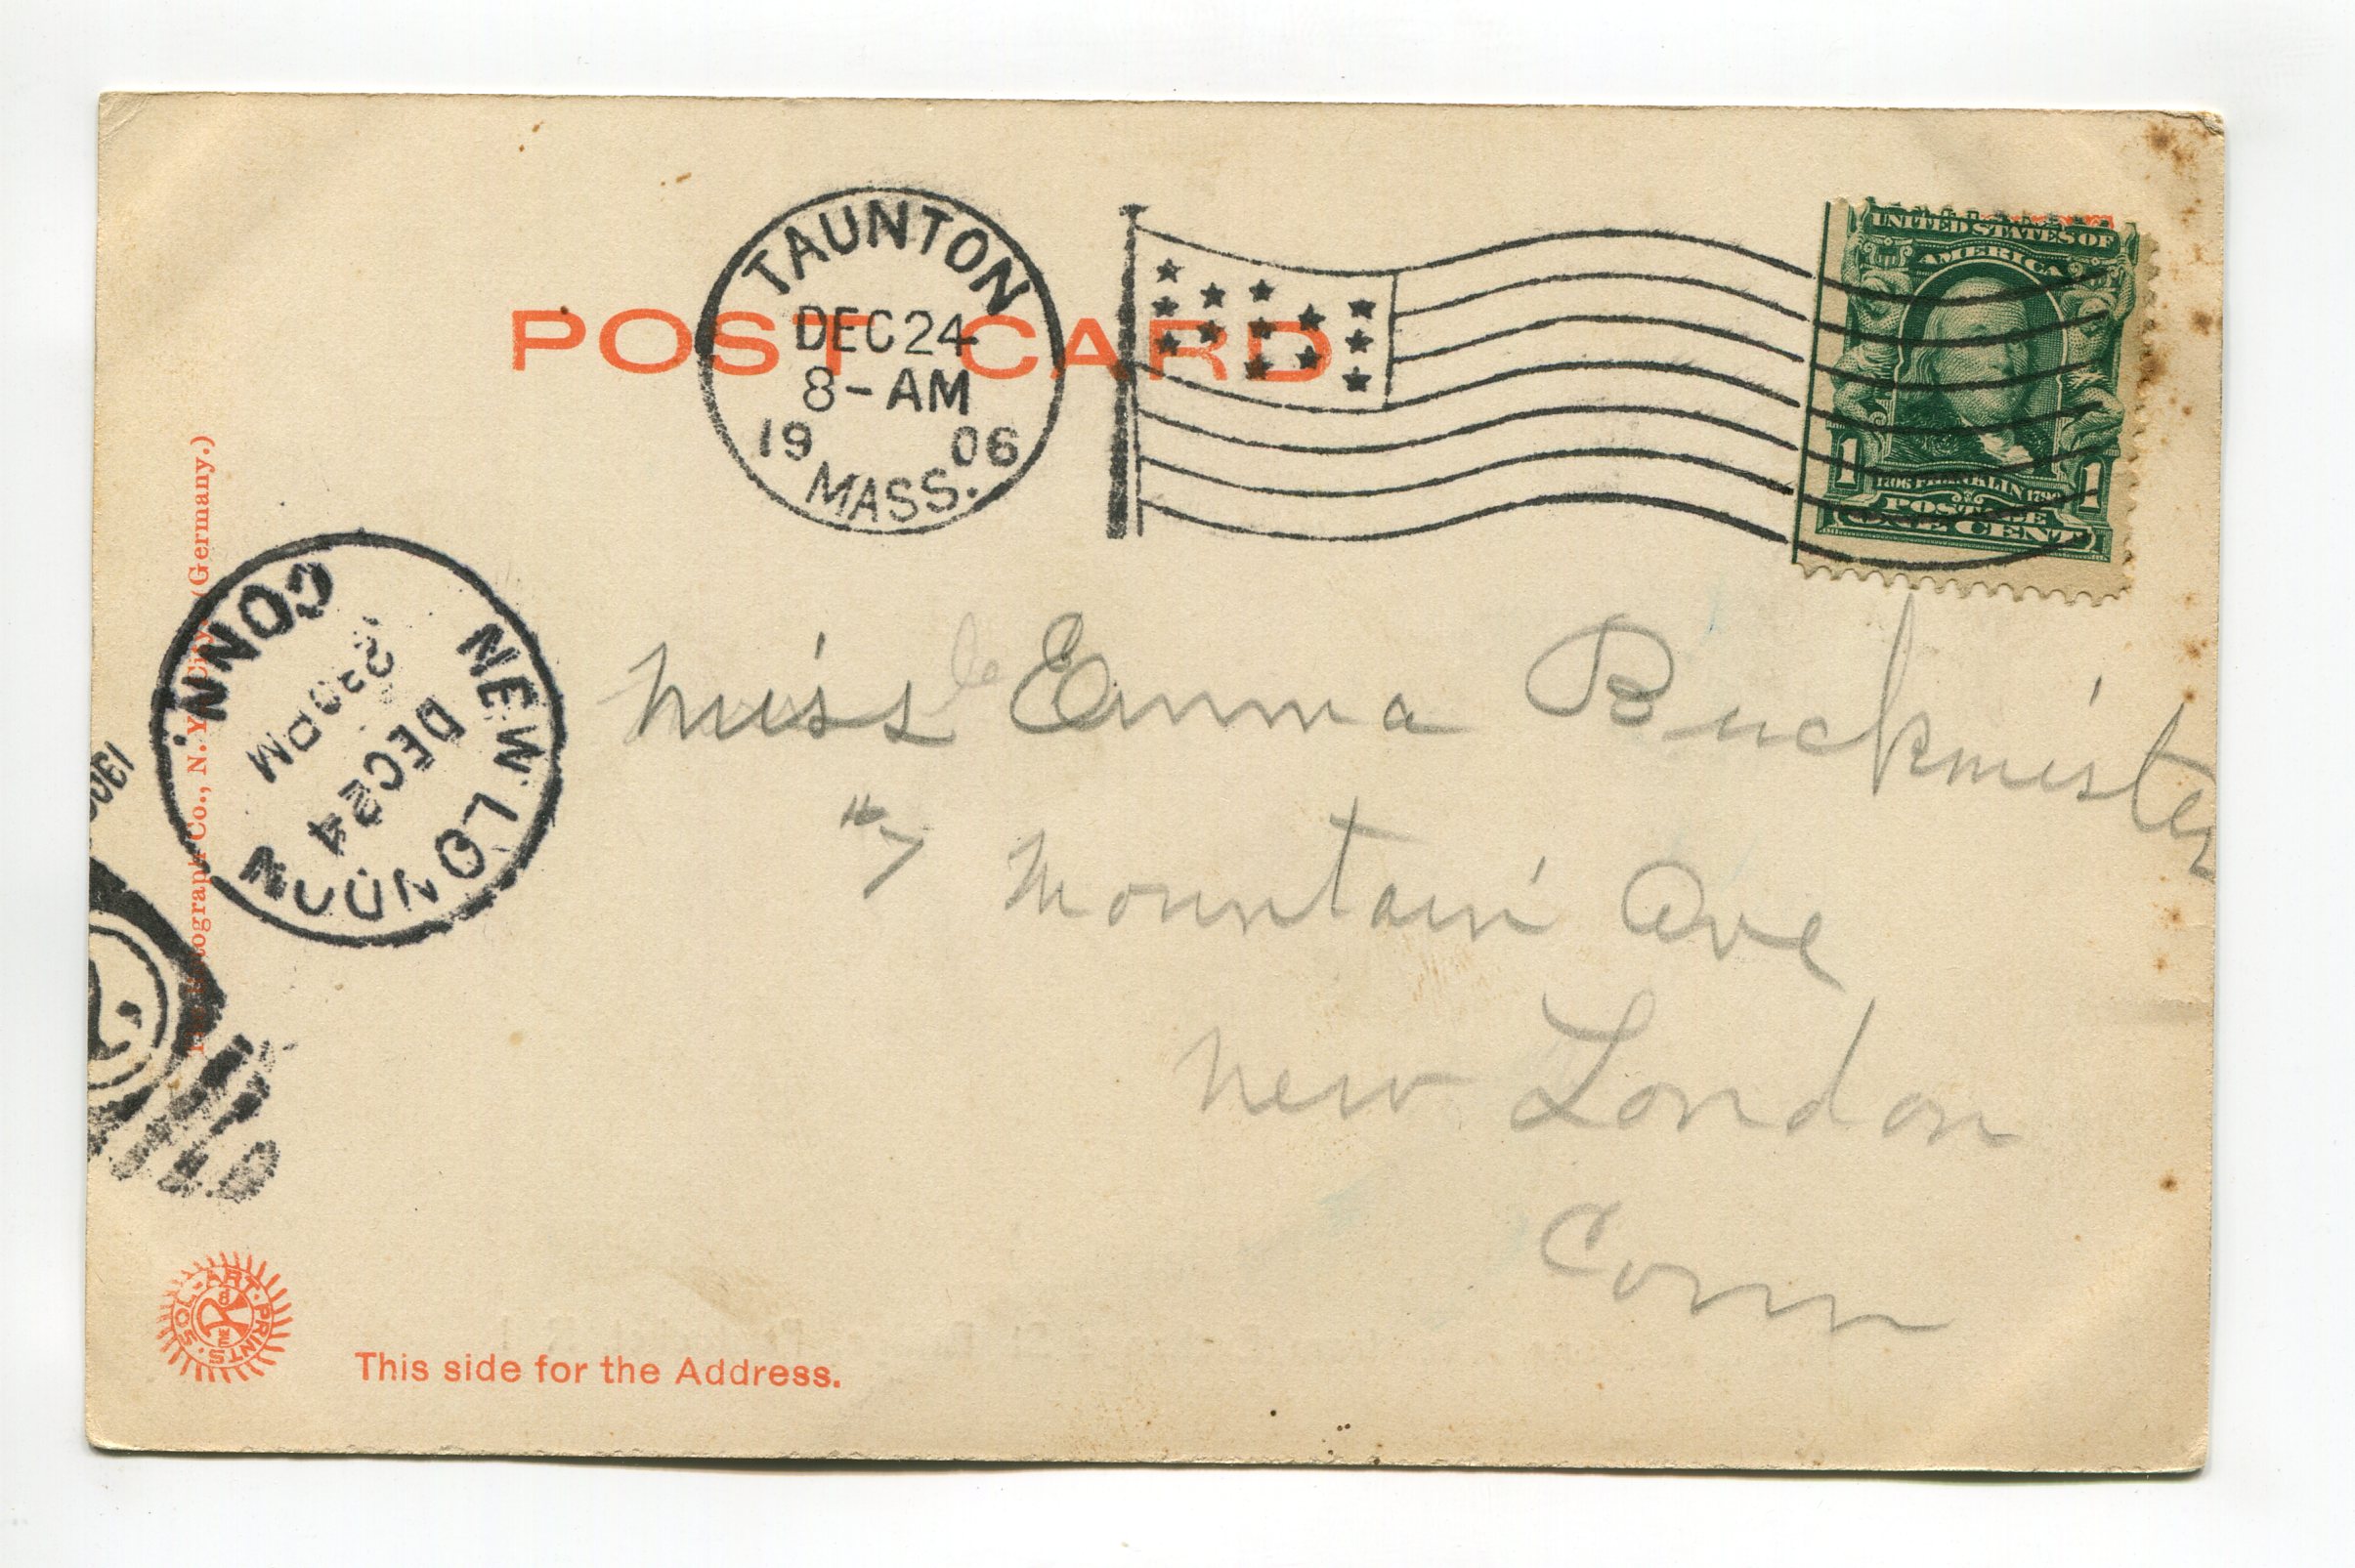 POST CARD
TAUNTON
DEC 24
8-AM
19 06
MASS.
UNITED STATES OF
AMERICA
1 1706 FRANKLIN 1790 1
POSTAGE
ONE CENT
Co., N.Y. City. (Germany.)
NEW LONDON
CONN.
DEC 24
230 PM
190
Miss Emma Buckmister
#7 Mountain Ave
New London
Conn
POSOL-ART-PRINTS.
This side for the Address.